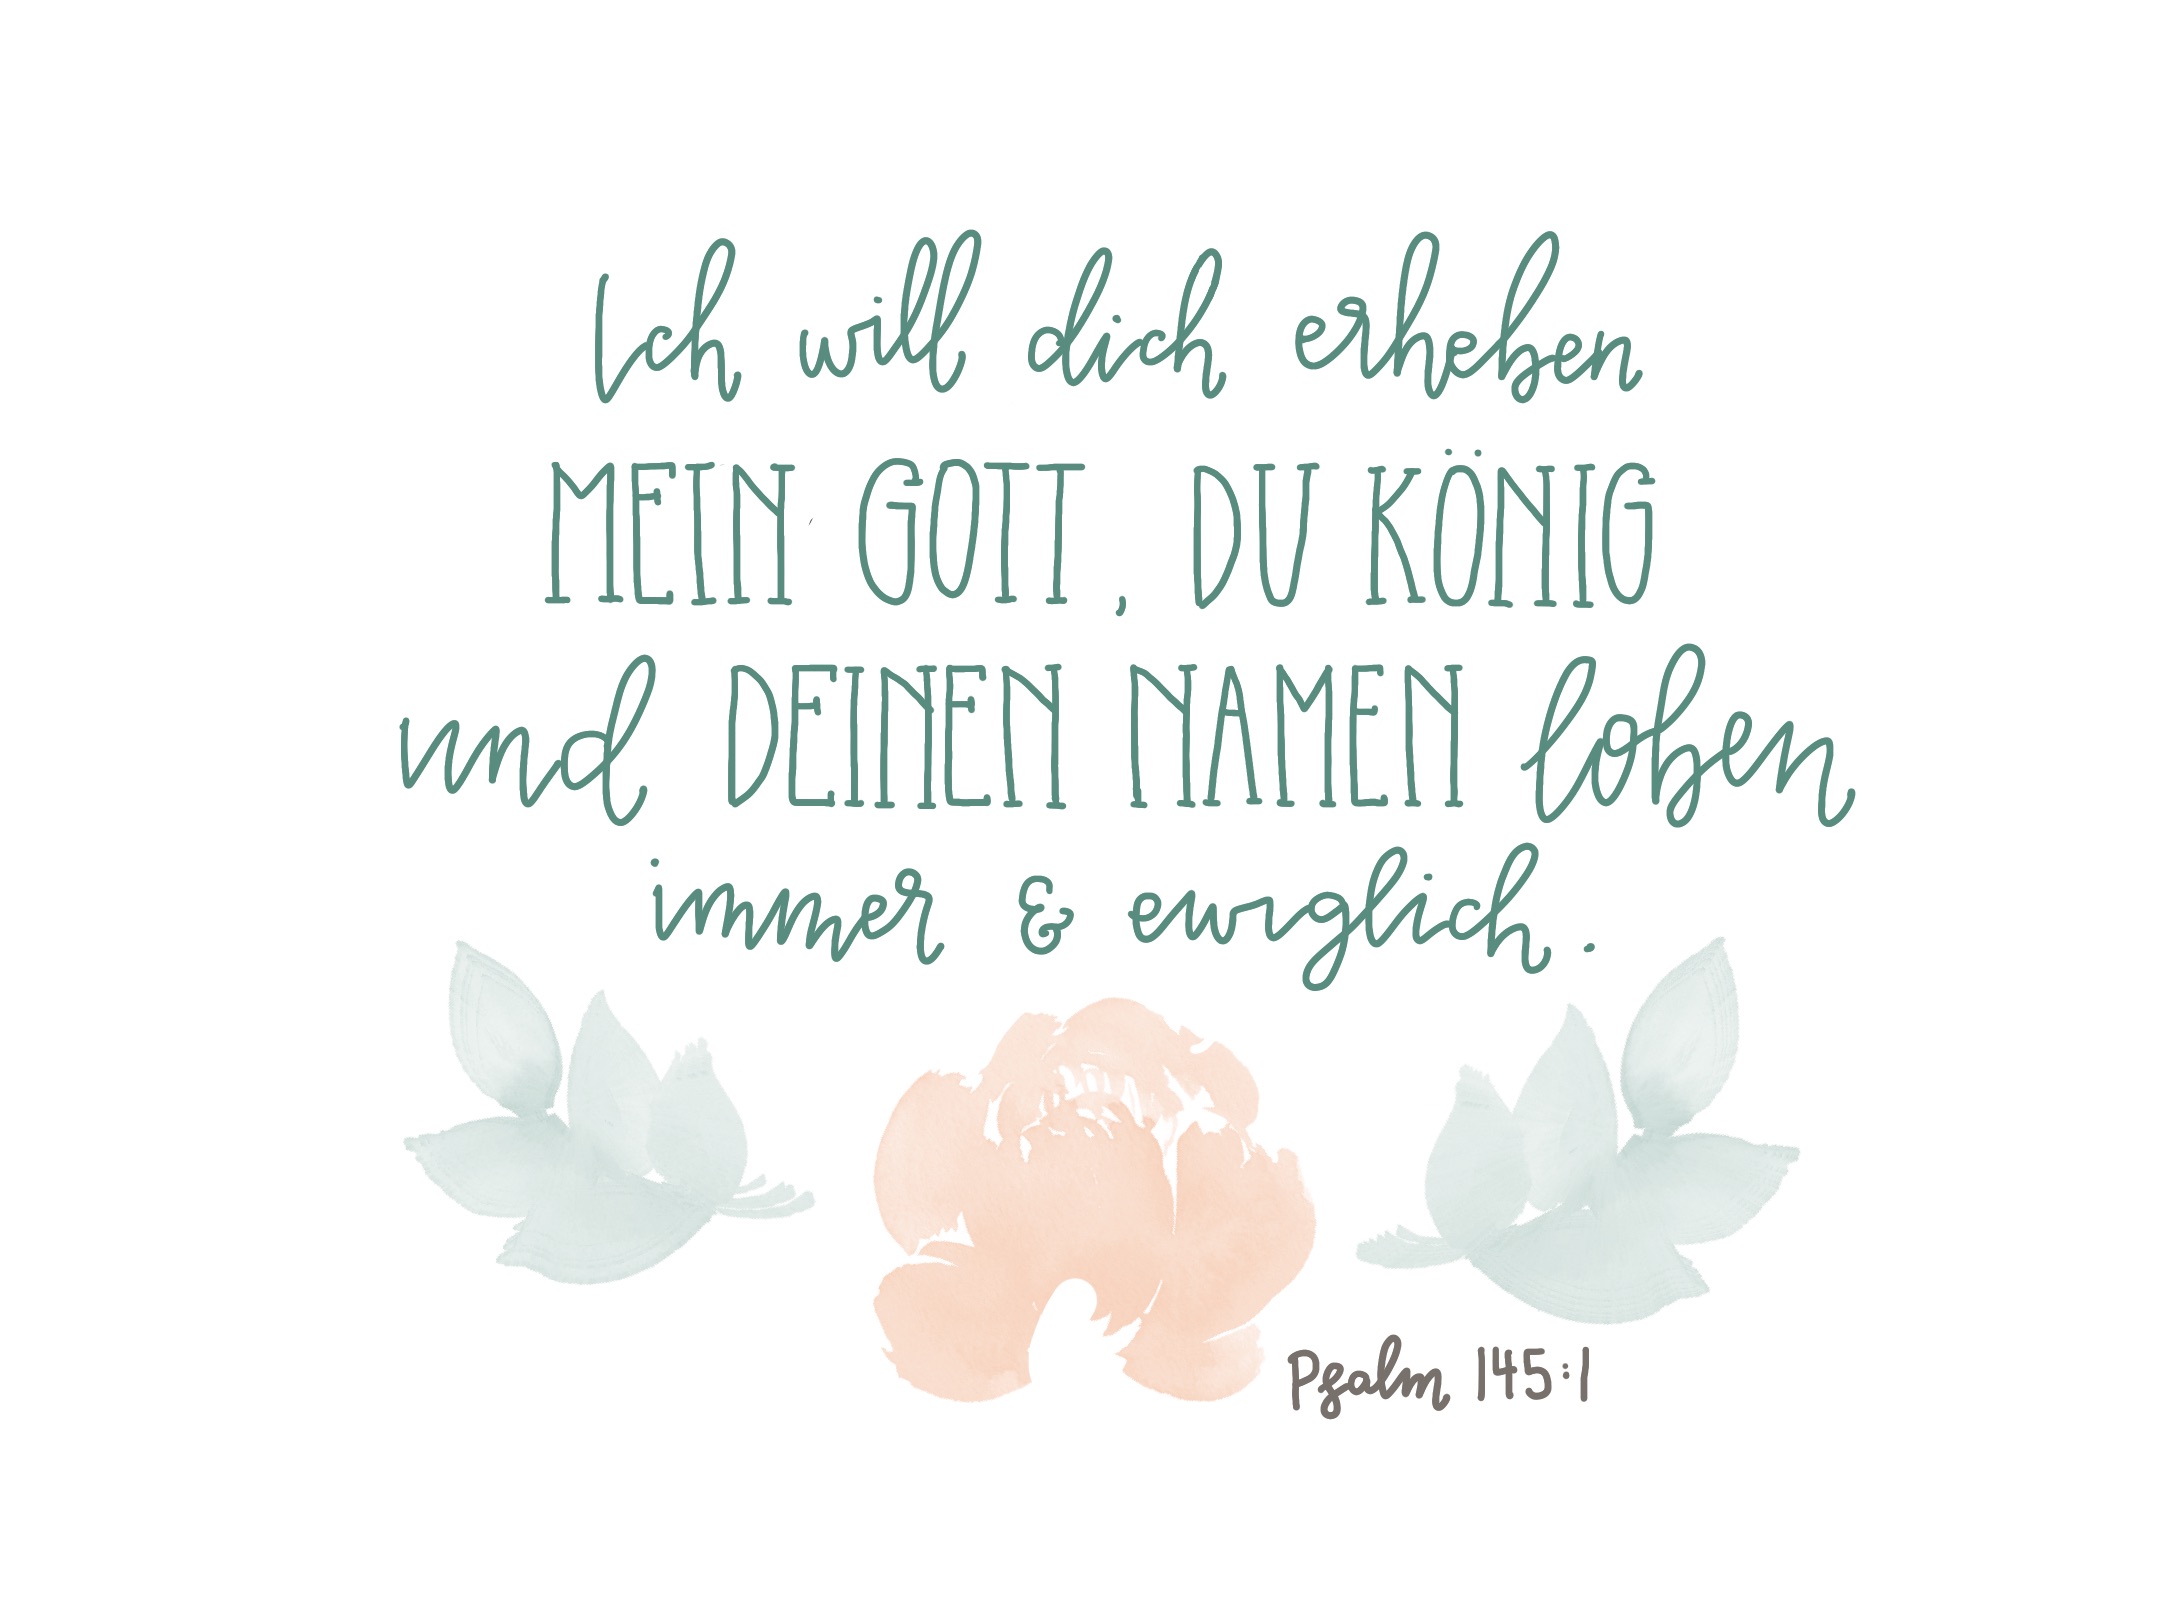 Ich will dich erheben
MEIN GOTT, DU KÖNIG
und DEINEN NAMEN loben
immer & ewiglich.
Psalm 145:1